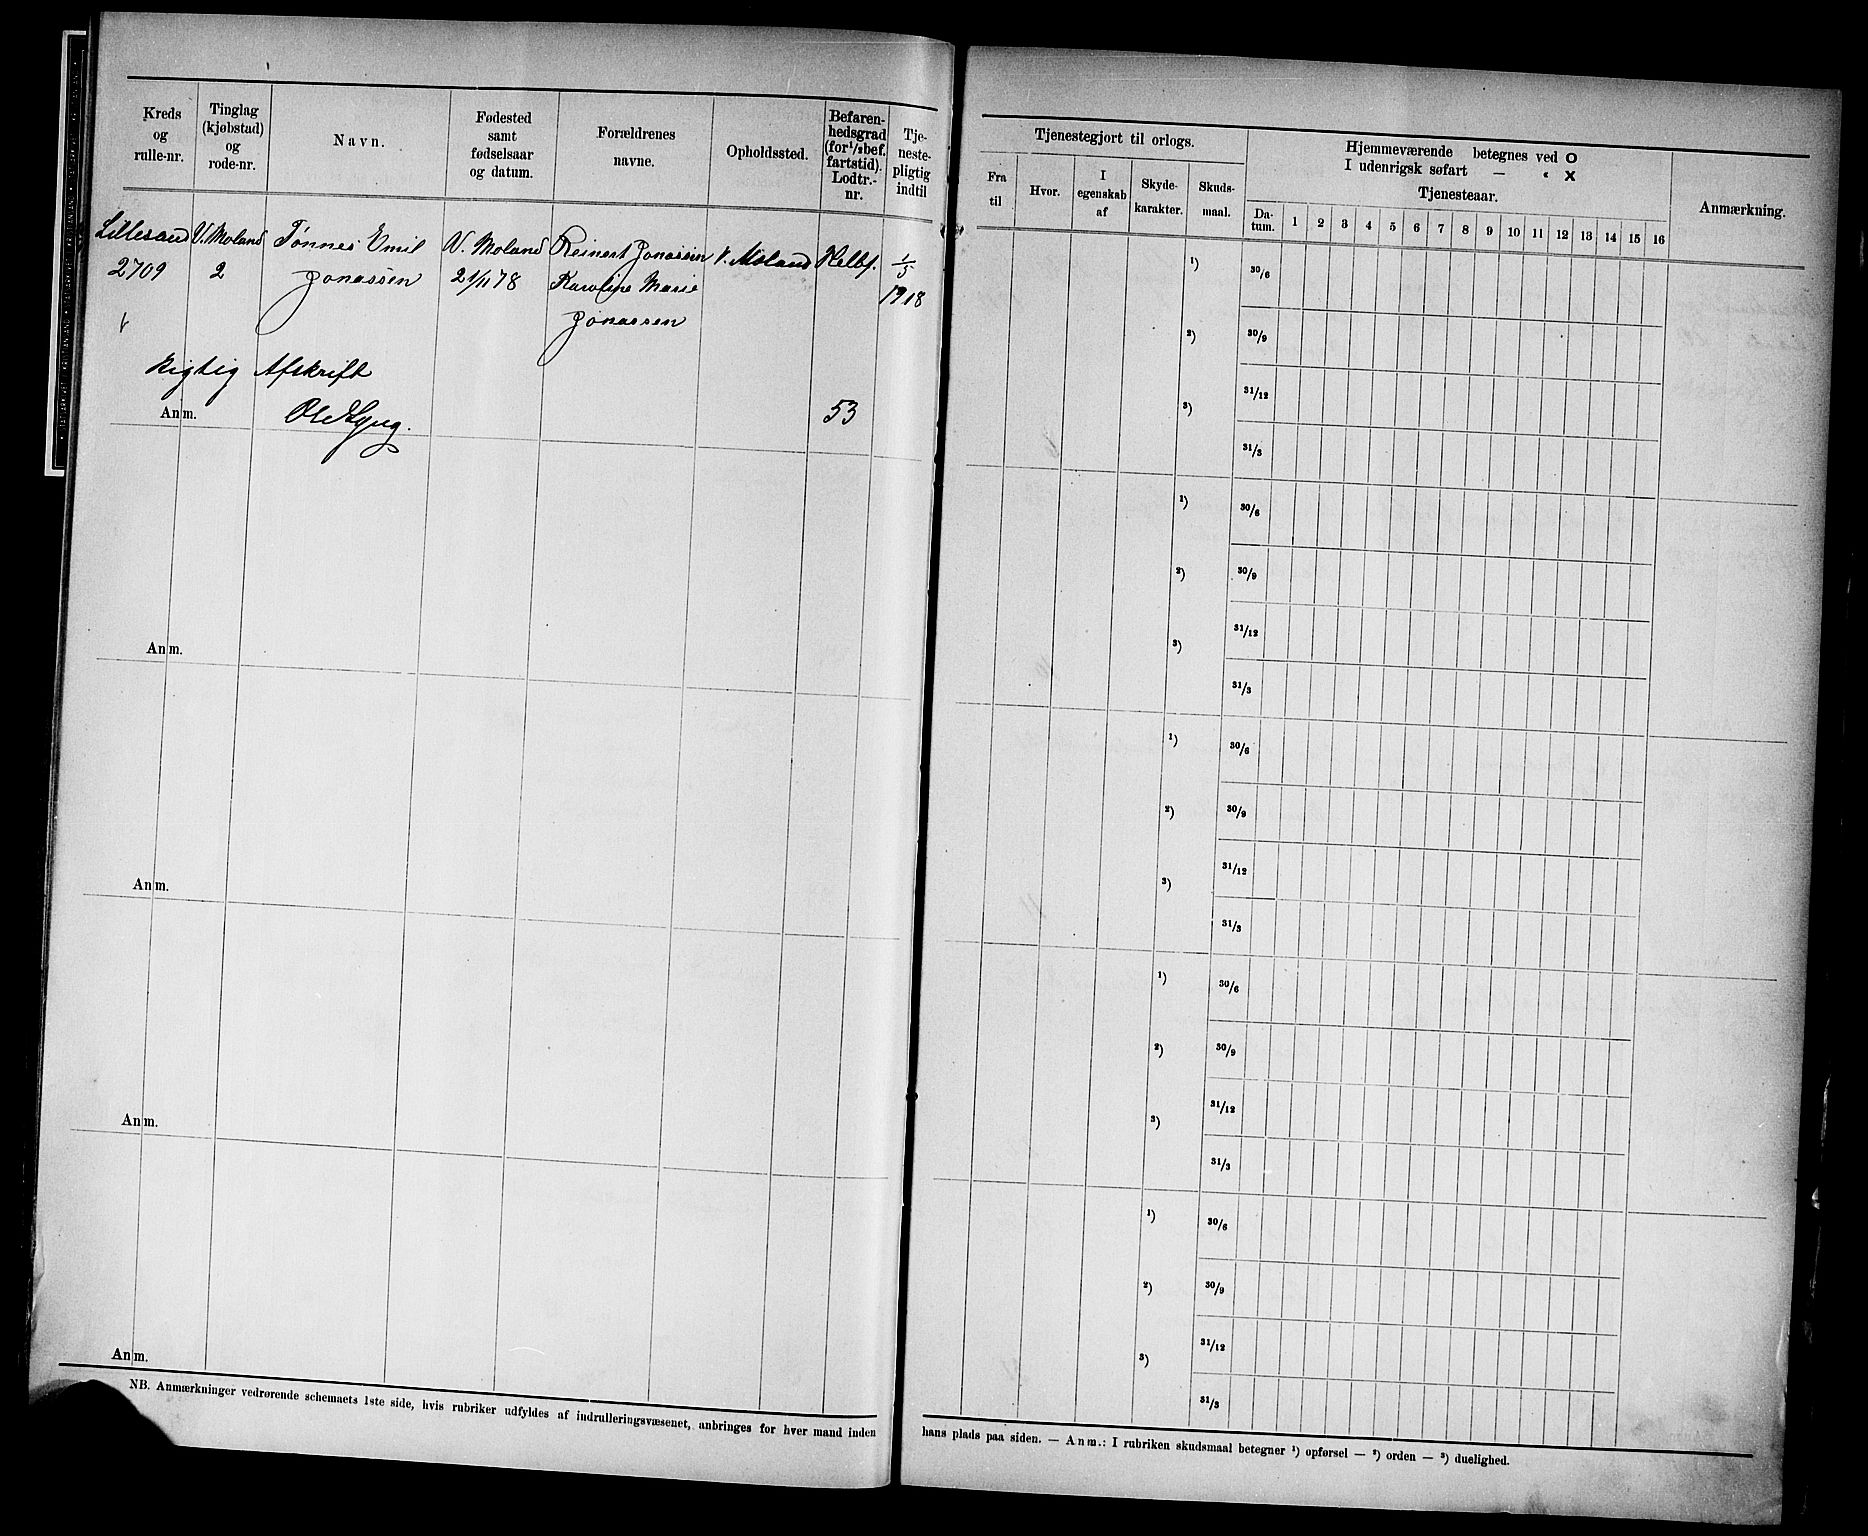 Kreds
og
rulle-nr.
Tinglag
(kjøbstad)
og
rode-nr.
Navn.
Fødested
samt
fødselsaar
og datum.
Forældrenes
navne.
Opholdssted.
Befaren-
hedsgrad
(for ½ bef.
fartstid).
Lodtr.-
nr.
Tje-
neste-
pligtig
indtil
Lillesand
2709
V. Moland
2
Tønnes Emil
Jonassen
V. Moland
21/11 78
Reinert Jonassen
Karoline Marie
Jonassen
V. Moland
Helbf.
1/5
1918
Rigtig Afskrift
Anm.
53
Anm.
Anm.
Anm.
Anm.
NB. Anmærkninger vedrørende schemaets 1ste side, hvis rubriker udfyldes af indrulleringsvæsenet, anbringes for hver mand inden
Tjenestegjort til orlogs.
Fra
til
Hvor.
I
egenskab
af
Skyde-
karakter.
Skuds-
maal.
Hjemmeværende betegnes ved O
I udenrigsk søfart — « X
Tjenesteaar.
Da-
tum.
1 2 3 4 5 6 7 8 9 10 11 12 13 14 15 16
Anmærkning.
¹)
30/6
²)
30/9
³)
31/12
31/3
¹)
30/6
²)
30/9
³)
31/12
31/3
¹)
30/6
²)
30/9
³)
31/12
31/3
¹)
30/6
²)
30/9
³)
31/12
31/3
¹)
30/6
²)
30/9
³)
31/12
31/3
hans plads paa siden. — Anm.: I rubriken skudsmaal betegner ¹) opførsel — ²) orden — ³) duelighed.